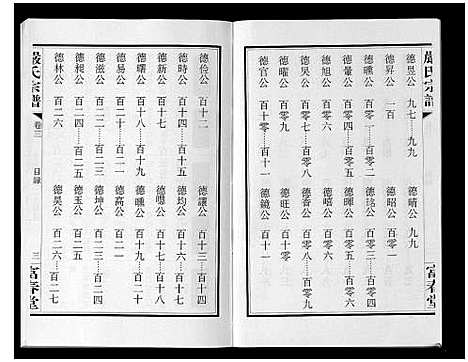 嚴氏宗譜
富春堂
德昱公 九七……九九 德晴公 九九
德昇公 一百 德昭公 百零一
德曛公 百零一……百零二 德銘公 百零二
德暈公 百零四……百零五 德暉公 百零五……百零六
德旭公 百零七 德曦公 百零六
德晏公 百零七……百零八 德香公 百零八
德曜公 百零九 德旺公 百零九
德官公 百十零……百十一 德鏡公 百十一
德儉公 百十二 德讓公 百十三……百十四
德時公 百十四……百十五 德均公 百十六
德新公 百十七 德曍公 百十七
德曙公 百十八……百十九 德曛公 百十八……百十九
德易公 百二十 德高公 百二一
德滋公 百二二……百二三 德坤公 百二三……百二四
德昶公 百二四……百二五 德玉公 百二五
德林公 百二六 德昊公 百二六……百二七
嚴氏宗譜 卷三 目錄 三 富春堂